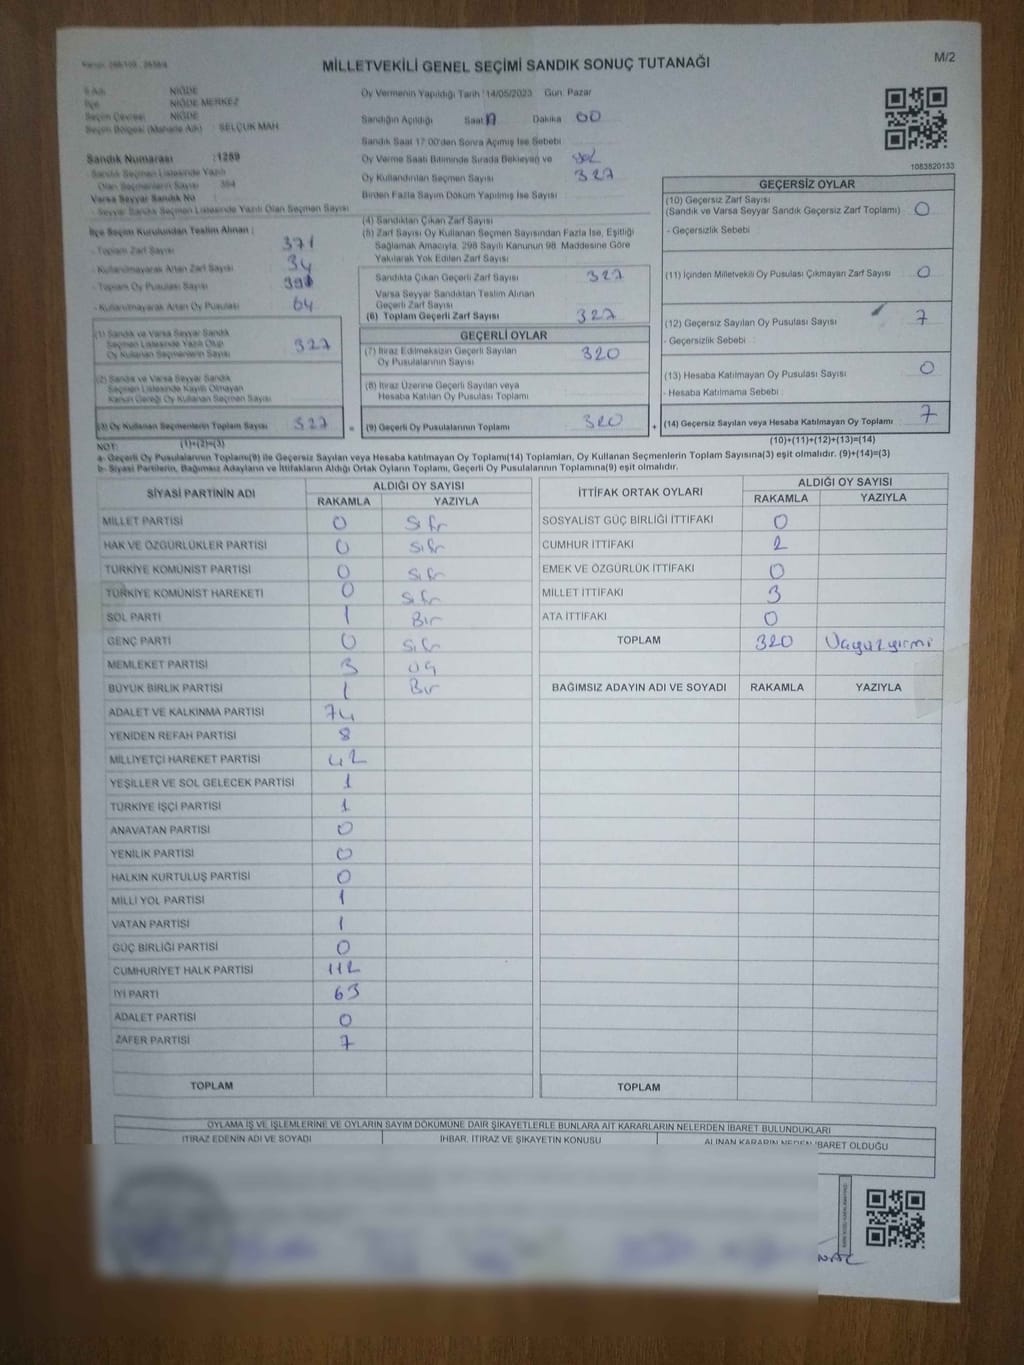 MİLLETVEKİLİ GENEL SEÇİMİ SANDIK SONUÇ TUTANAĞI
M/2
İl Adı NİĞDE
İlçe NİĞDE MERKEZ
Seçim Çevresi NİĞDE
Seçim Bölgesi (Mahalle Adı) : SELÇUK MAH
Sandık Numarası : 1289
- Sandık Seçmen Listesinde Yazılı
Olan Seçmenlerin Sayısı
Varsa Seyyar Sandık No
- Seyyar Sandık Seçmen Listesinde Yazılı Olan Seçmen Sayısı
İlçe Seçim Kurulundan Teslim Alınan :
- Toplam Zarf Sayısı 371
- Kullanılmayarak Artan Zarf Sayısı 34
- Toplam Oy Pusulası Sayısı
- Kullanılmayarak Artan Oy Pusulası 64
(1) Sandık ve Varsa Seyyar Sandık
Seçmen Listesinde Yazılı Olup
Oy Kullanan Seçmenlerin Sayısı 327
(2) Sandık ve Varsa Seyyar Sandık
Seçmen Listesinde Kayıtlı Olmayan
Kanun Gereği Oy Kullanan Seçmen Sayısı
(3) Oy Kullanan Seçmenlerin Toplam Sayısı 327
(1)+(2)=(3)
Oy Vermenin Yapıldığı Tarih : 14/05/2023 Gün: Pazar
Sandığın Açıldığı Saat 17 Dakika 00
Sandık Saat 17:00'den Sonra Açılmış İse Sebebi
Oy Verme Saati Bitiminde Sırada Bekleyen ve yok
Oy Kullandırılan Seçmen Sayısı 327
Birden Fazla Sayım Döküm Yapılmış İse Sayısı
(4) Sandıktan Çıkan Zarf Sayısı
(5) Zarf Sayısı Oy Kullanan Seçmen Sayısından Fazla İse, Eşitliği
Sağlamak Amacıyla, 298 Sayılı Kanunun 98. Maddesine Göre
Yakılarak Yok Edilen Zarf Sayısı
Sandıkta Çıkan Geçerli Zarf Sayısı 327
Varsa Seyyar Sandıktan Teslim Alınan
Geçerli Zarf Sayısı
(6) Toplam Geçerli Zarf Sayısı 327
GEÇERLİ OYLAR
(7) İtiraz Edilmeksizin Geçerli Sayılan
Oy Pusulalarının Sayısı 320
(8) İtiraz Üzerine Geçerli Sayılan veya
Hesaba Katılan Oy Pusulası Toplamı
= (9) Geçerli Oy Pusulalarının Toplamı 320
1083520133
GEÇERSİZ OYLAR
(10) Geçersiz Zarf Sayısı
(Sandık ve Varsa Seyyar Sandık Geçersiz Zarf Toplamı) 0
- Geçersizlik Sebebi
(11) İçinden Milletvekili Oy Pusulası Çıkmayan Zarf Sayısı 0
(12) Geçersiz Sayılan Oy Pusulası Sayısı 7
- Geçersizlik Sebebi :
(13) Hesaba Katılmayan Oy Pusulası Sayısı 0
- Hesaba Katılmama Sebebi
+ (14) Geçersiz Sayılan veya Hesaba Katılmayan Oy Toplamı 7
(10)+(11)+(12)+(13)=(14)
NOT:
a- Geçerli Oy Pusulalarının Toplamı(9) ile Geçersiz Sayılan veya Hesaba katılmayan Oy Toplamı(14) Toplamları, Oy Kullanan Seçmenlerin Toplam Sayısına(3) eşit olmalıdır. (9)+(14)=(3)
b- Siyasi Partilerin, Bağımsız Adayların ve İttifakların Aldığı Ortak Oyların Toplamı, Geçerli Oy Pusulalarının Toplamına(9) eşit olmalıdır.
SİYASİ PARTİNİN ADI ALDIĞI OY SAYISI
RAKAMLA YAZIYLA
MİLLET PARTİSİ 0 Sıfır
HAK VE ÖZGÜRLÜKLER PARTİSİ 0 Sıfır
TÜRKİYE KOMÜNİST PARTİSİ 0 Sıfır
TÜRKİYE KOMÜNİST HAREKETİ 0 Sıfır
SOL PARTİ 1 Bir
GENÇ PARTİ 0 Sıfır
MEMLEKET PARTİSİ 3 Üç
BÜYÜK BİRLİK PARTİSİ 1 Bir
ADALET VE KALKINMA PARTİSİ 74
YENİDEN REFAH PARTİSİ 8
MİLLİYETÇİ HAREKET PARTİSİ 42
YEŞİLLER VE SOL GELECEK PARTİSİ 1
TÜRKİYE İŞÇİ PARTİSİ 1
ANAVATAN PARTİSİ 0
YENİLİK PARTİSİ 0
HALKIN KURTULUŞ PARTİSİ 0
MİLLİ YOL PARTİSİ 1
VATAN PARTİSİ 1
GÜÇ BİRLİĞİ PARTİSİ 0
CUMHURİYET HALK PARTİSİ 112
İYİ PARTİ 63
ADALET PARTİSİ 0
ZAFER PARTİSİ 7
TOPLAM
İTTİFAK ORTAK OYLARI ALDIĞI OY SAYISI
RAKAMLA YAZIYLA
SOSYALİST GÜÇ BİRLİĞİ İTTİFAKI 0
CUMHUR İTTİFAKI 2
EMEK VE ÖZGÜRLÜK İTTİFAKI 0
MİLLET İTTİFAKI 3
ATA İTTİFAKI 0
TOPLAM 320 Üçyüzyirmi
BAĞIMSIZ ADAYIN ADI VE SOYADI RAKAMLA YAZIYLA
TOPLAM
OYLAMA İŞ VE İŞLEMLERİNE VE OYLARIN SAYIM DÖKÜMÜNE DAİR ŞİKAYETLERLE BUNLARA AİT KARARLARIN NELERDEN İBARET BULUNDUKLARI
İTİRAZ EDENİN ADI VE SOYADI İHBAR, İTİRAZ VE ŞİKAYETİN KONUSU ALINAN KARARIN NEDEN İBARET OLDUĞU